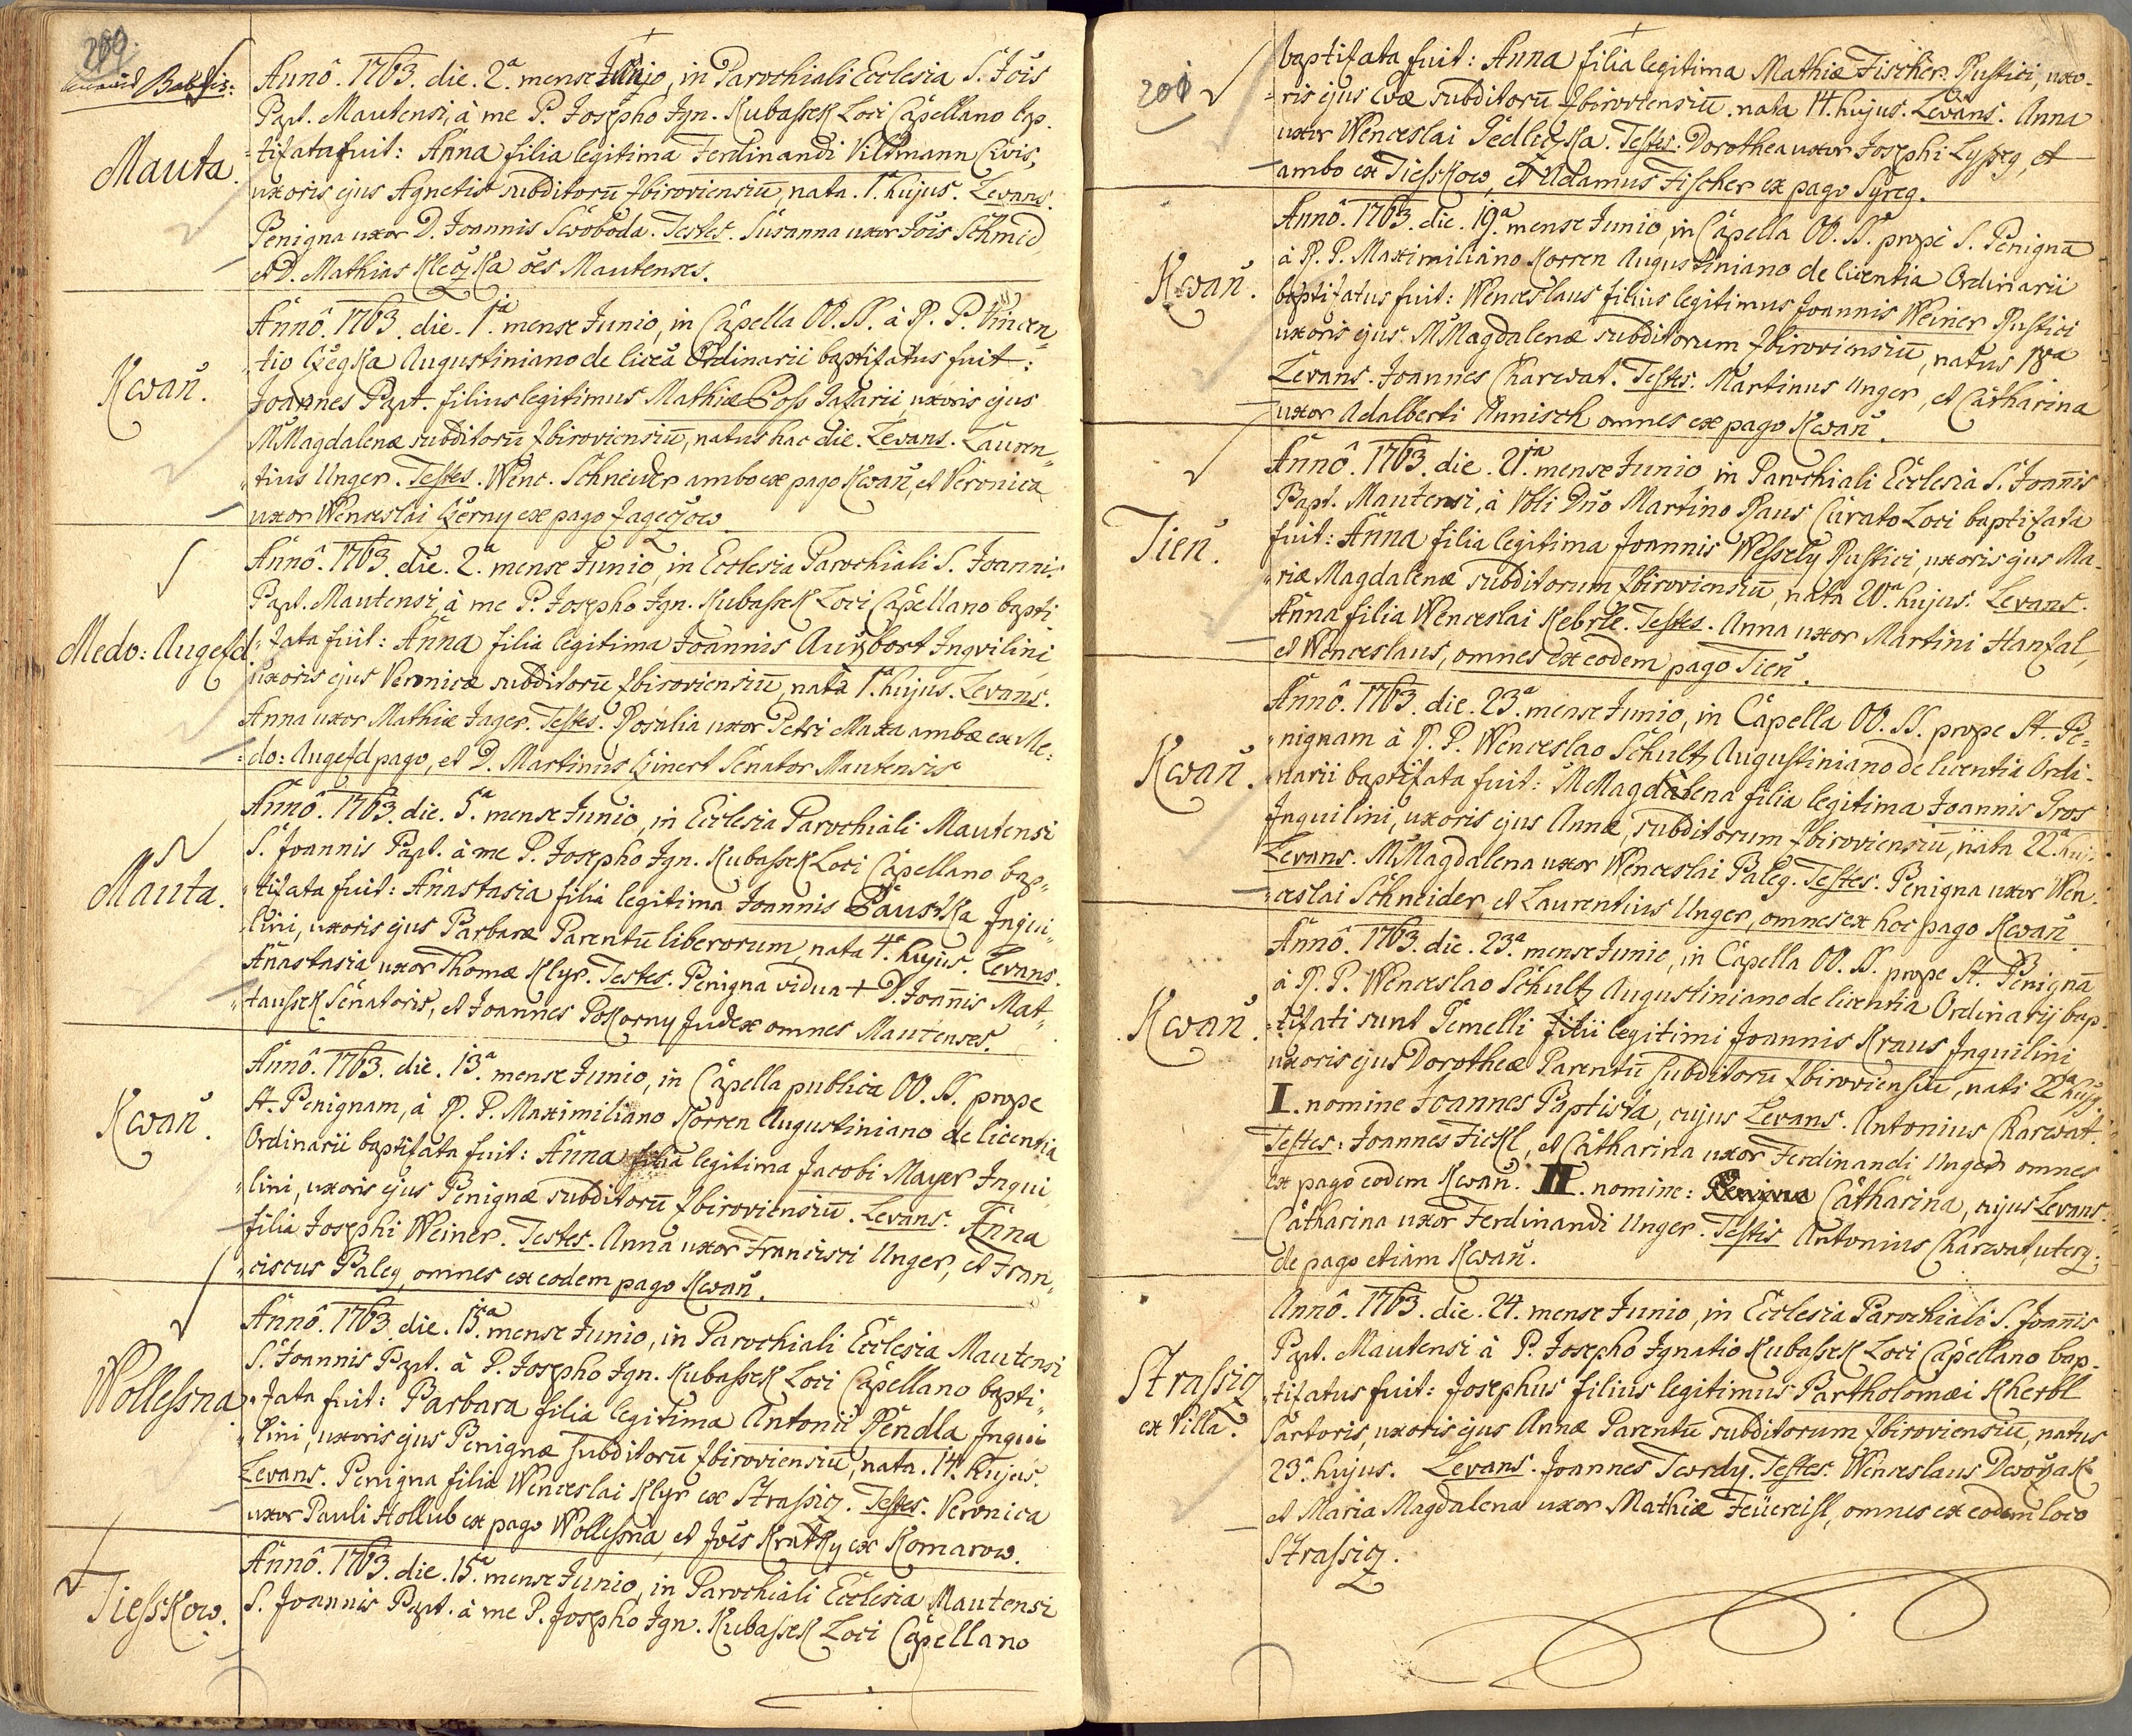 Mauta.
Annô. 1763. die. 2.a mense Junio, in Parochiali Ecclesia S. Jois
Bapt. Mautensi, à me P. Josepho Ign. Kubassek Loci Capellano bap-
=tisata fuit: Anna filia legitima Ferdinandi Vildmann Civis,
uxoris ejus Agnetis subditorū Zbiroviensiū, nata. 1.a hujus. Levans.
Benigna uxor D. Joannis Swoboda. Testes. Susanna uxor Jois Schmid
et D. Mathias Kleczka oēs Mautenses.
Kwaň.
Annô. 1763. die. 1.a mense Junio, in Capella OO. SS. à R. P. Vincen-
"tio Czegka Augustiniano de liceā Ordinarii baptisatus fuit:
Joannes Bapt. filius legitimus Mathiæ Poss Jazarii, uxoris ejus
M.Magdalenæ subditorū Zbiroviensiū, natus hac die. Levans. Lauren-
"tius Unger. Testes. Wenc. Schneider ambo ex pago Kwaň, et Veronica
uxor Wenceslai Czerny ex pago Jageczow
Medo: Augezd.
Annô. 1763. die. 2.a mense Junio, in Ecclesia Parochiali S. Joannis
Bapt. Mautensi, à me P. Josepho Ign. Kubassek Loci Capellano bapti-
"zata fuit: Anna filia legitima Joannis Inqvilini,
uxoris ejus Veronicæ subditorū Zbiroviensiū, nata 1.a hujus. Levans.
Anna uxor Mathiæ Jager. Testes. Rosalia uxor Petri Maxa ambæ ex Me-
=do: Augezd pago, et D. Martinus Czinert Senator Mautensis
Mauta.
Annô. 1763. die. 5.a mense Junio, in Ecclesia Parochiali Mautensi
S. Joannis Bapt. à me P. Josepho Ign. Kubassek Loci Capellano bap-
"tisata fuit: Anastasia filia legitima Joannis Paustka Inqui-
"lini, uxoris ejus Barbaræ Parentū liberorum, nata 4.a hujus. Levans.
Anastasia uxor Thomæ Klyr. Testes. Benigna vidua + D. Joannis Mat-
"taussek Senatoris, et Joannes Pokorny Judex omnes Mautenses.
Kwaň.
Annô. 1763. die. 13.a mense Junio, in Capella publica OO. SS. prope
St. Benignam, à R. P. Maximiliano Korren Augustiniano de licentia
Ordinarii baptisata fuit: Anna filia legitima Jacobi Mayer Inqui-
"lini, uxoris ejus Benignæ subditorū Zbiroviensiū. Levans. Anna
filia Josephi Weiner. Testes. Anna uxor Francisci Unger, et Fran-
"ciscus Baleg, omnes ex eodem pago Kwaň.
Wollessna
Annô. 1763. die. 15.a mense Junio, in Parochiali Ecclesia Mautensi
S. Joannis Bapt. à P. Josepho Ign. Kubassek Loci Capellano bapti-
"zata fuit: Barbara filia legitima Antonii Rendla Inqui-
"lini, uxoris ejus Benignæ subditorū Zbiroviensiū, nata. 14. hujus.
Levans. Benigna filia Wenceslai Klyr ex Strassicz. Testes. Veronica
uxor Pauli Hollub ex pago Wollessna, et Joēs Krutky ex Komarow.
Tiesskow.
Annô. 1763. die. 15.a mense Junio, in Parochiali Ecclesia Mautensi
S. Joannis Bapt. à me P. Josepho Ign. Kubassek Loci Capellano
201
baptisata fuit: Anna filia legitima Mathiæ Fischer Rustici, uxo-
=ris ejus Evæ subditorū Zbiroviensiū. nata 14. hujus. Levans. Anna
uxor Wenceslai Gedliczka. Testes: Dorothea uxor Josephi Lysseg, et
ambo ex Tiesskow, et Adamus Fischer ex pago Syreg.
Kwaň.
Annô. 1763. die. 19.a mense Junio, in Capella OO. SS. prope S. Benignā
à R. P. Maximiliano Korren Augustiniano de licentia Ordinarii
baptisatus fuit: Wenceslaus filius legitimus Joannis Weiner Rustici
uxoris ejus M.Magdalenæ subditorum Zbiroviensiū, natus 18.a
Levans. Joannes Charwat. Testes. Martinus Unger, et Catharina
uxor Adalberti Annisch omnes ex pago Kwaň.
Tieň.
Annô. 1763. die. 21.ma mense Junio, in Parochiali Ecclesia S. Joannis
Bapt. Mautensi, à Vbli Dno Martino Raus Curato Loci baptizata
fuit: Anna filia legitima Joannis Wessely Rustici, uxoris ejus Ma-
"riæ Magdalenæ subditorum Zbiroviensiū, nata 20.a hujus. Levans.
Anna filia Wenceslai Kebrle. Testes. Anna uxor Martini Hanzal,
et Wenceslaus, omnes ex eodem pago Tieň.
Kwaň.
Annô. 1763. die. 23.a mense Junio, in Capella OO. SS. prope St. Be-
"nignam à R. P. Wenceslao Schultz Augustiniano de licentia Ordi-
"narii baptisata fuit: M.Magdalena filia legitima Joannis Pros
Inquilini, uxoris ejus Annæ, subditorum Zbiroviensiū, nata 22.a huj.
Levans. M.Magdalena uxor Wenceslai Baleg. Testes. Benigna uxor Wen-
"ceslai Schneider et Laurentius Unger, omnes ex hoc pago Kwaň.
Kwaň.
Annô. 1763. die. 23.a mense Junio, in Capella OO. SS. prope St. Benignā
à R. P. Wenceslao Schultz Augustiniano de licentia Ordinarij bap-
"tisati sunt Gemelli filii legitimi Joannis Kraus Inquilini
uxoris ejus Dorotheæ Parentū subditorū Zbiroviensiū, nati 22.a hujg.
I. nomine Joannes Baptista, cujus Levans. Antonius Charwat.
Testes: Joannes Fickl, et Catharina uxor Ferdinandi Unger omnes
ex pago eodem Kwaň. II. nomine: Catharina, cujus Levans.
Catharina uxor Ferdinandi Unger. Testis Antonius Charwat, uterq;
de pago etiam Kwaň.
Strassicz
ex Villa.
Annô. 1763. die. 24. mense Junio, in Ecclesia Parochiali S. Joannis
Bapt. Mautensi à P. Josepho Ignatio Kubassek Loci Capellano bap-
"tisatus fuit: Josephus filius legitimus Bartholomæi Kherbl
Sartoris, uxoris ejus Annæ Parentū subditorum Zbiroviensiū, natus
23.a hujus. Levans. Joannes Twrdy. Testes. Wenceslaus Dworzak
et Maria Magdalena uxor Mathiæ Feüereisl, omnes ex eodem loco
Strassicz.